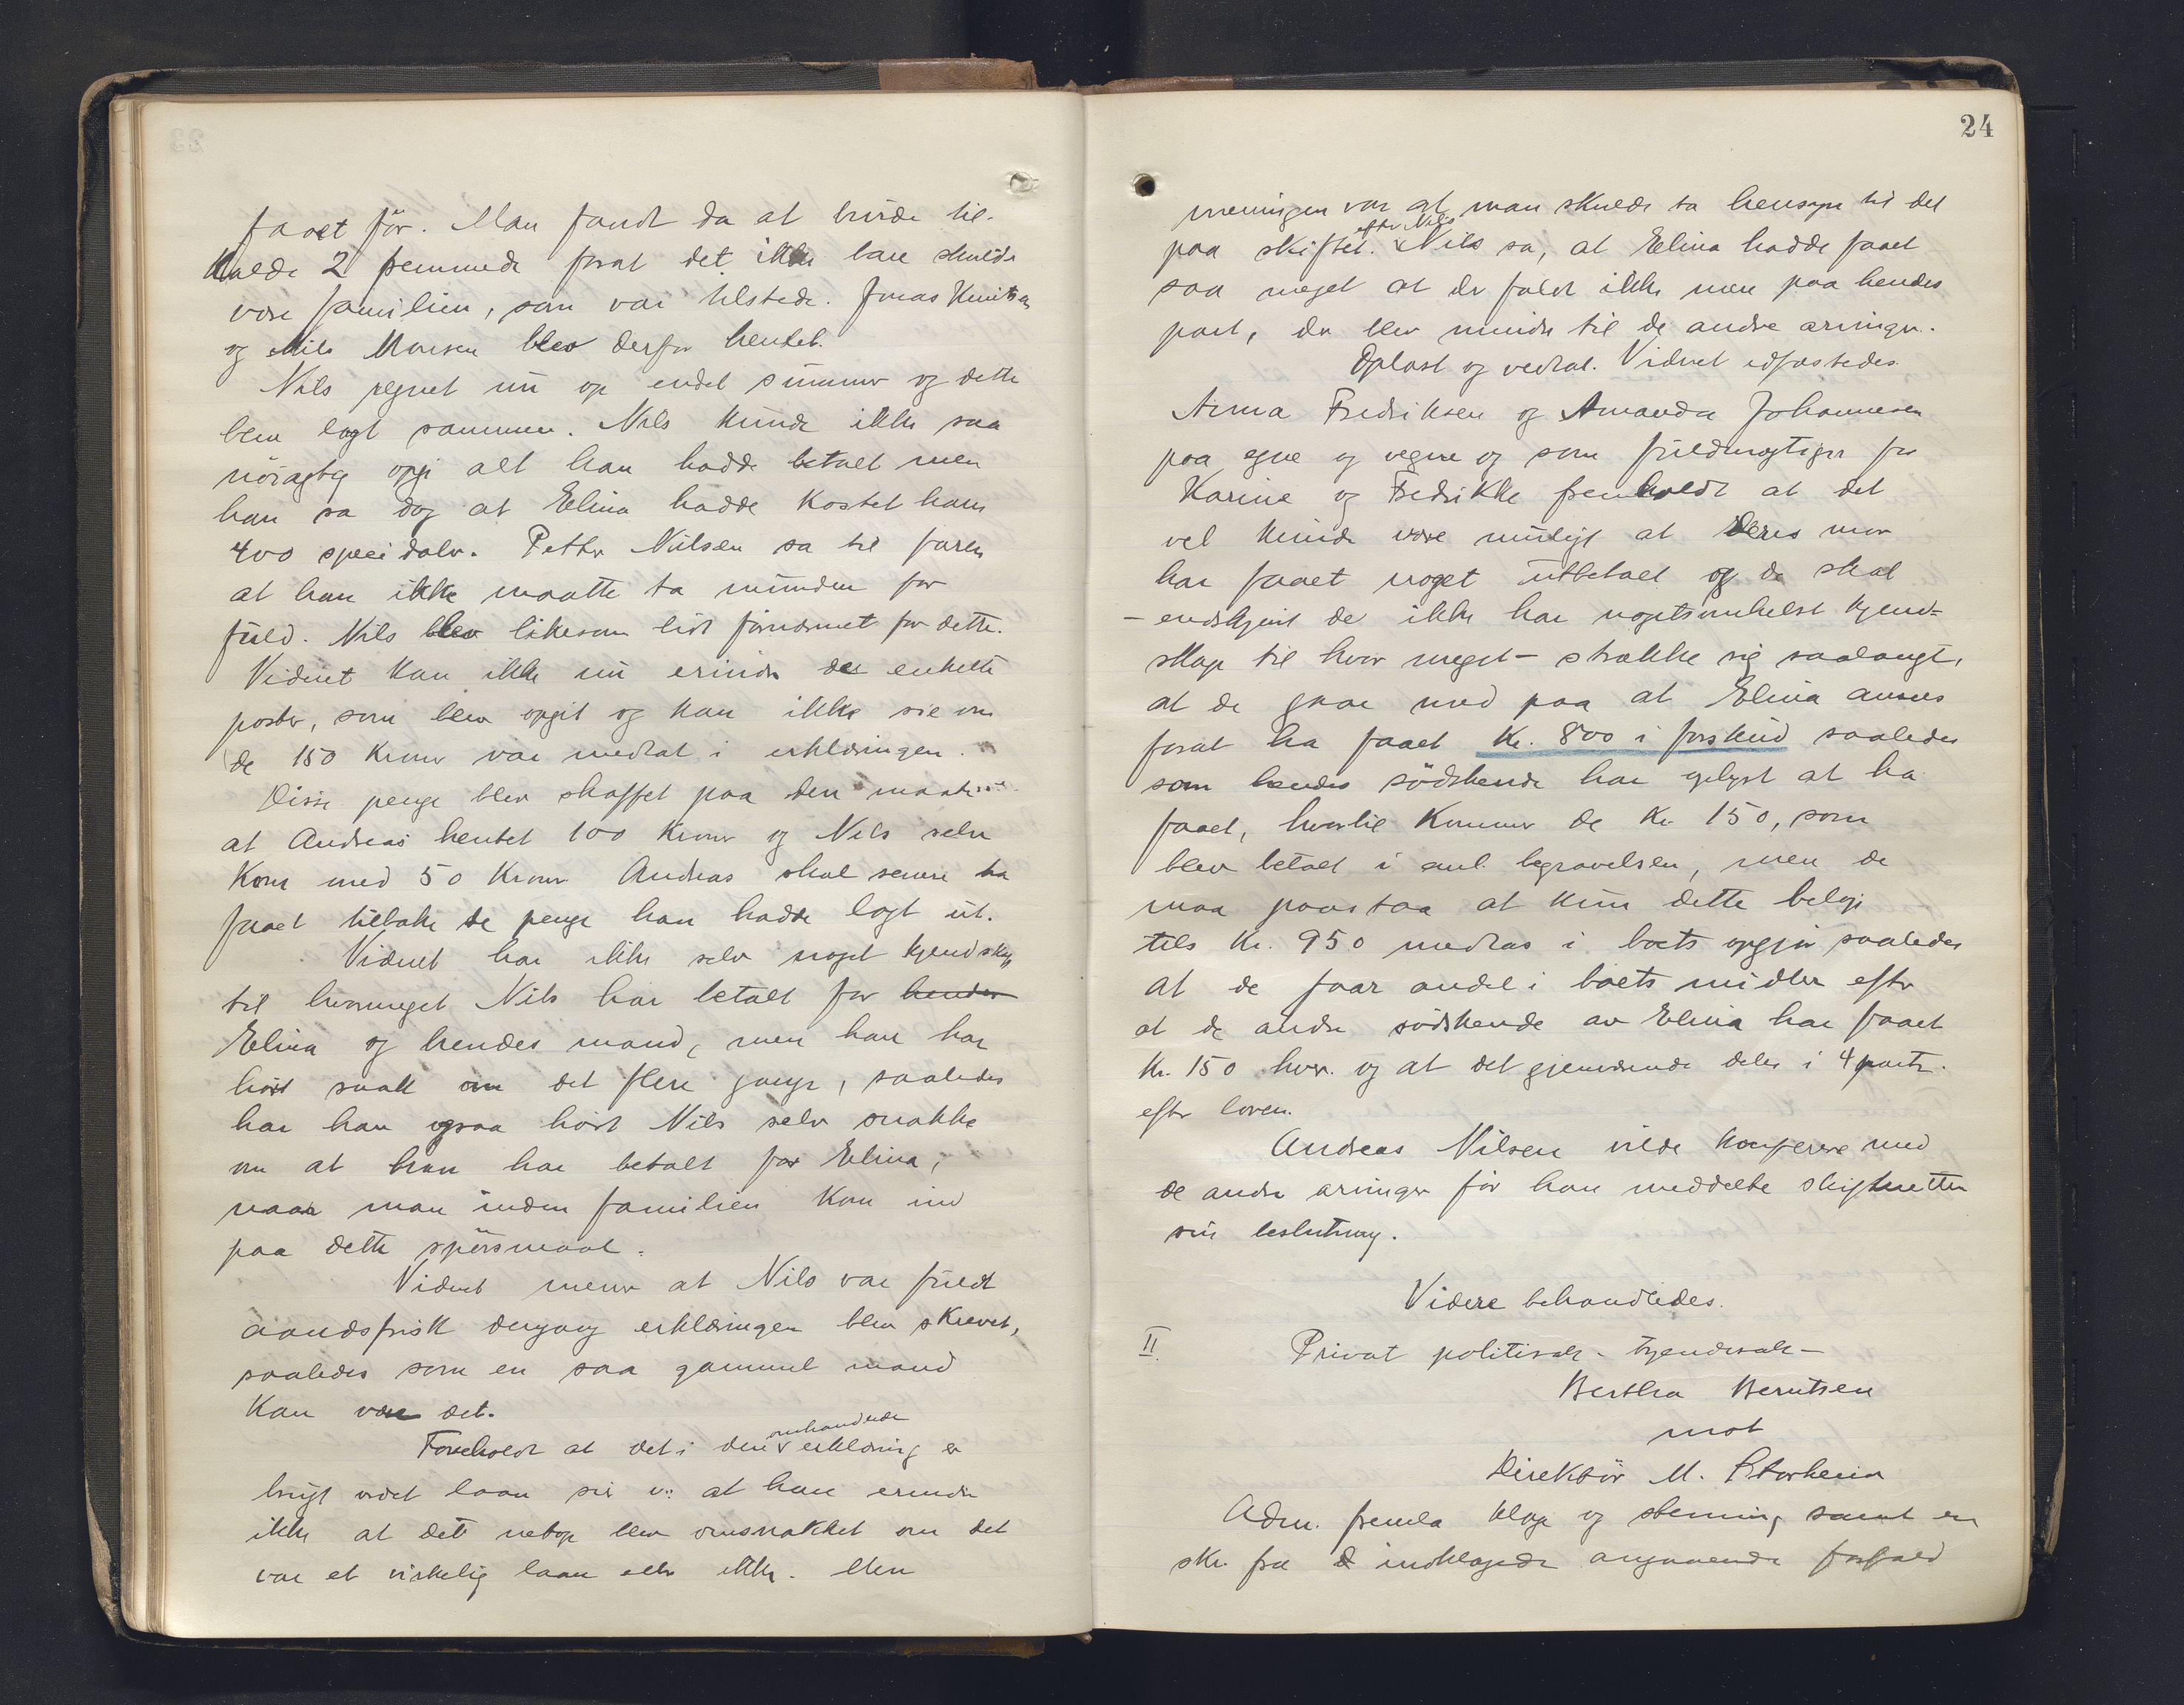 faaet før. Man fandt da at burde til-
kalde 2 fremmede forat det ikke bare skulde
være familien, som var tilstede. Jonas Knutsen
og Nils Monsen blev derfor hentet.
Nils regnet nu op endel summer og dette
blev lagt sammen. Nils kunde ikke saa
nøiagtig opgi alt han hadde betalt men
han sa dog at Elina hadde kostet ham
400 speidaler. Petter Nilsen sa til faren
at han ikke maatte ta munden for
fuld. Nils blev likesom lidt fornærmet for dette.
Vidnet kan ikke nu erindre de enkelte
poster, som blev opgit og kan ikke sie om
de 150 kroner var medtat i erklæringen.
Disse penge blev skaffet paa den maate
at Andreas hentet 100 kroner og Nils selv
kom med 50 kroner. Andreas skal senere ha
faaet tilbake de penge han hadde lagt ut.
Vidnet har ikke selv noget kjendskap
til hvormeget Nils har betalt for hendes
Elina og hendes mand, men han har
hørt snakk om det flere gange, saaledes
har han ogsaa hørt Nils selv snakke
om at han har betalt for Elina,
naar man inden familien kom ind
paa dette spørsmaal.
Vidnet mener at Nils var fuldt
aandsfrisk dengang erklæringen blev skrevet,
saaledes som en saa gammel mand
kan være det.
Foreholdt at det i den omhandlede erklæring er
brugt ordet laan sir v: at han erindrer
ikke at det netop blev omsnakket om det
var et virkelig laan eller ikke. Men
24
meningen var at man skulde ta hensyn til det
paa skiftet efter Nils. Nils sa, at Elina hadde faaet
saa meget at der faldt ikke mere paa hendes
part, der blev mindre til de andre arvinger.
Oplæst og vedtat. Vidnet edfæstedes.
Anna Fredriksen og Amanda Johannesen
paa egne og vegne og som fuldmægtiger for
Karine og Fredrikke fremholdt at det
vel kunde være muligt at deres mor
har faaet noget utbetalt og de skal
- endskjønt de ikke har nogetsomhelst kjend-
skap til hvor meget - strække sig saalangt,
at de gaar med paa at Elina ansees
forat ha faaet Kr. 800 i forskud saaledes
som hendes sødskende har oplyst at ha
faaet, hvortil kommer de Kr 150, som
blev betalt i anl. begravelsen, men de
maa paastaa at kun dette beløp
tils Kr. 950 medtas i boets opgjør saaledes
at de faar andel i boets midler efter
at de andre sødskende av Elina har faaet
Kr. 150 hver. og at det gjenværende deles i 4 parter.
efter loven.
Andreas Nilsen vilde konferere med
de andre arvinger før han meddelte skifteretten
sin beslutning.
Videre behandledes.
II. Privat politisak - tyendesak -
Bertha Berntsen
mot
Direktør M. Storheim
Adm. fremla klage og stevning samt en
skr. fra d indklagede angaaende forfald